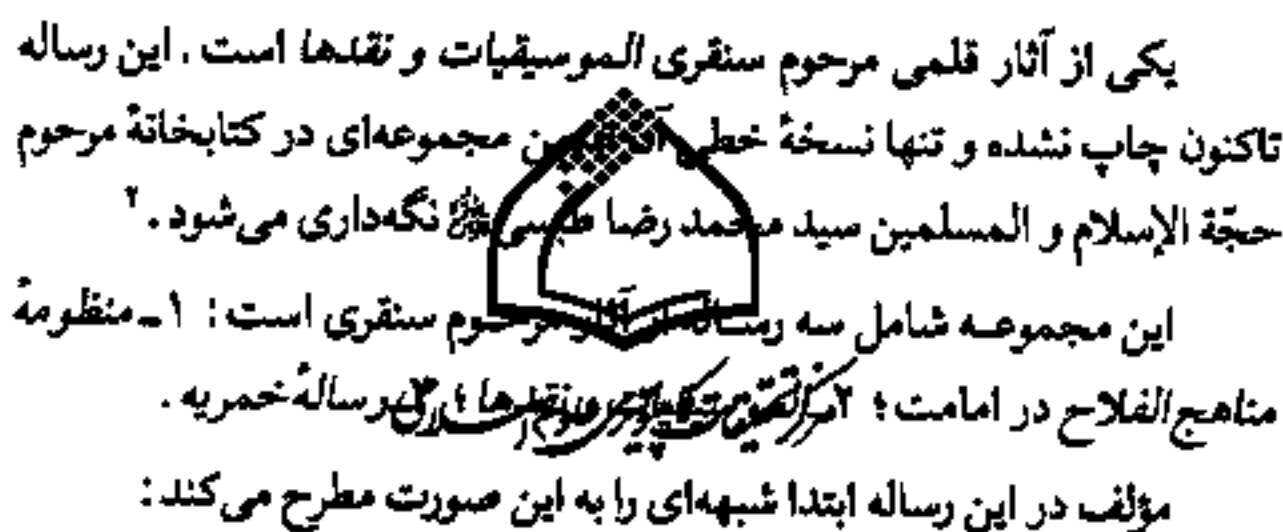 یکی از آثار قلمی مرحوم سنقری الموسیقیات و نقدها است. این رساله
تاکنون چاپ نشده و تنها نسخهٔ خطی مجموعه‌ای در کتابخانهٔ مرحوم
حجّة الإسلام و المسلمین سید محمد رضا طبسی نگه‌داری می‌شود.۲
این مجموعه شامل سه رساله از مرحوم سنقری است: ۱ـ منظومهٔ
مناهج الفلاح در امامت؛ ۲ـ نقدها؛ رسالهٔ خمریه.
مؤلف در این رساله ابتدا شبهه‌ای را به این صورت مطرح می‌کند: